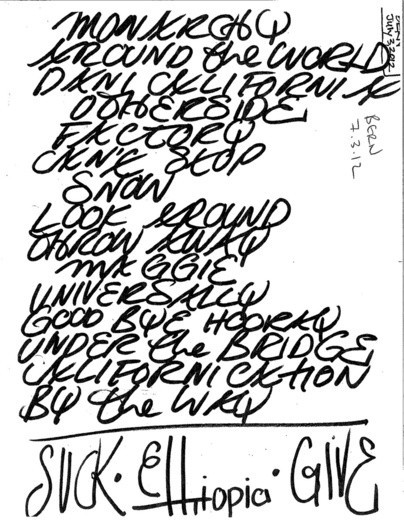 MONARCHY
AROUND the WORLD
DANI CALIFORNIA
OTHERSIDE
FACTORY
CANT STOP
SNOW
LOOK AROUND
THROW AWAY
MAGGIE
UNIVERSALLY
GOOD BYE HOORAY
UNDER the BRIDGE
CALIFORNICATION
BY the WAY
SUCK · Ethiopia · GIVE
JULY 3 2012
BERN
7.3.12